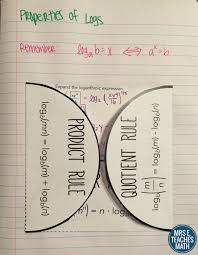 Properties of Logs
Remember log_a b = x ⟺ a^x = b
Expand the logarithmic expression.
= log_2
PRODUCT RULE
log_b(mn) = log_b(m) + log_b(n)
QUOTIENT RULE
log_b(m/n) = log_b(m) - log_b(n)
= n · log
MRS E
TEACHES
MATH